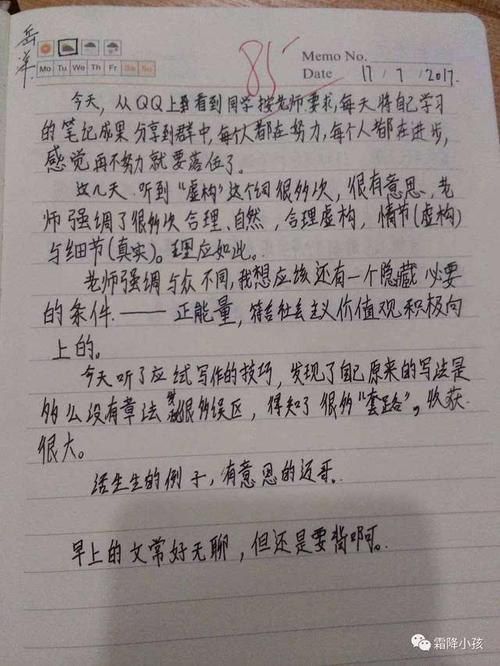 岳
洋
Mo Tu We Th Fr Sa Su
85
Memo No.
Date 17 / 7 / 2017.
今天，从QQ上到看到同学按老师要求每天将自己学习
的笔记成果分享到群中，每个人都在努力，每个人都在进步，
感觉再不努力就要落伍了。
这几天听到“虚构”这个词很多次，很有意思，老
师强调了很多次合理、自然，合理虚构，情节(虚构)
与细节(真实)。理应如此。
老师强调与众不同，我想应该还有一个隐藏必要
的条件——正能量，符合社会主义价值观积极向
上的。
今天听了应试写作的技巧，发现了自己原来的写法是
多么没有章法 很多误区，得知了很多“套路”，收获
很大。
活生生的例子，有意思的迈哥。
早上的文常好无聊，但还是要背啊可。
霜降小孩